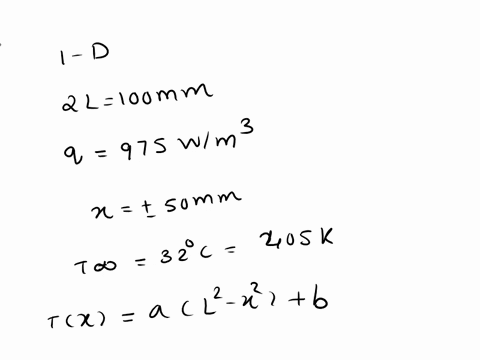 1-D
2L=100mm
q = 975 W/m³
x = ± 50mm
T∞ = 32°C = 405K
T(x) = a (L²-x²) + b